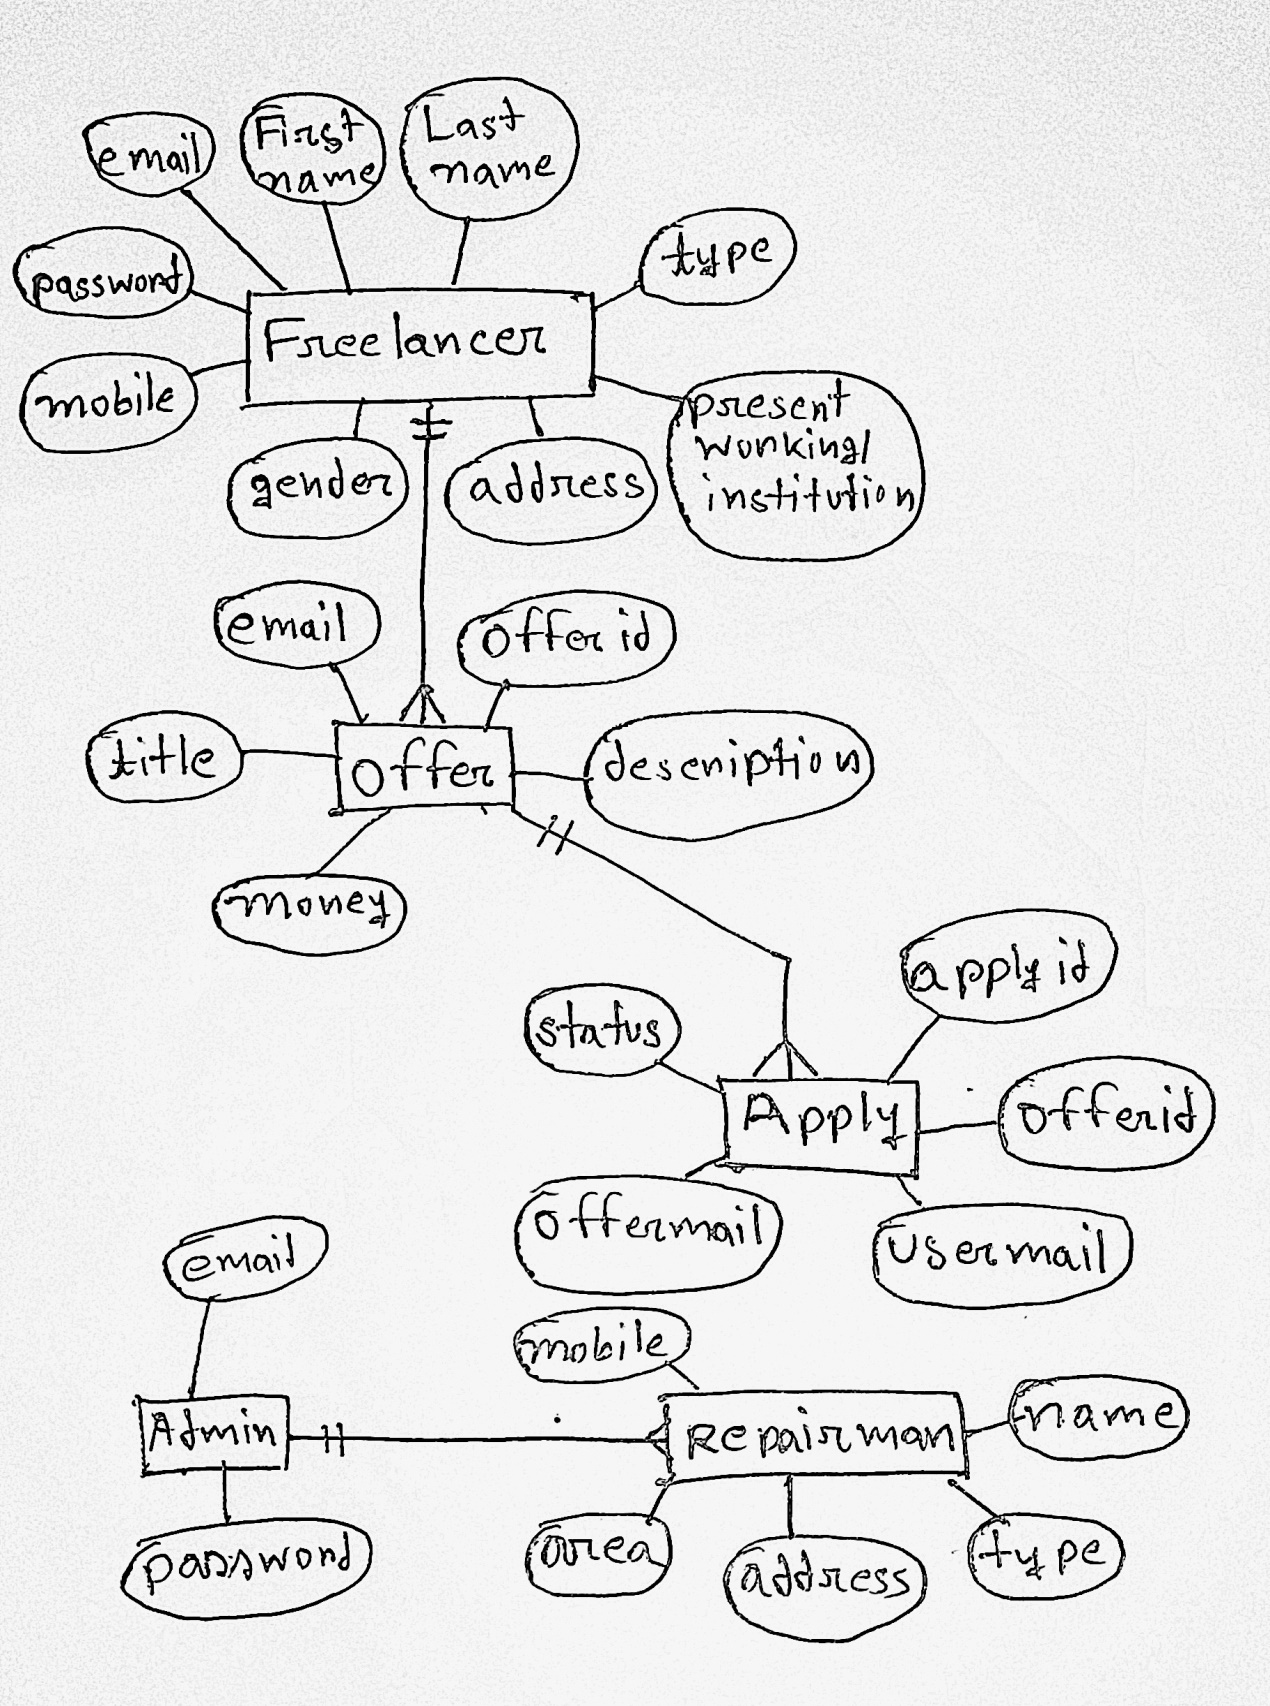 email
First
name
Last
name
type
password
Freelancer
mobile
present
working/
institution
gender
address
email
offer id
title
offer
deseription
money
apply id
status
Apply
offerid
offermail
Usermail
email
mobile
name
Admin
Repairman
password
area
address
type